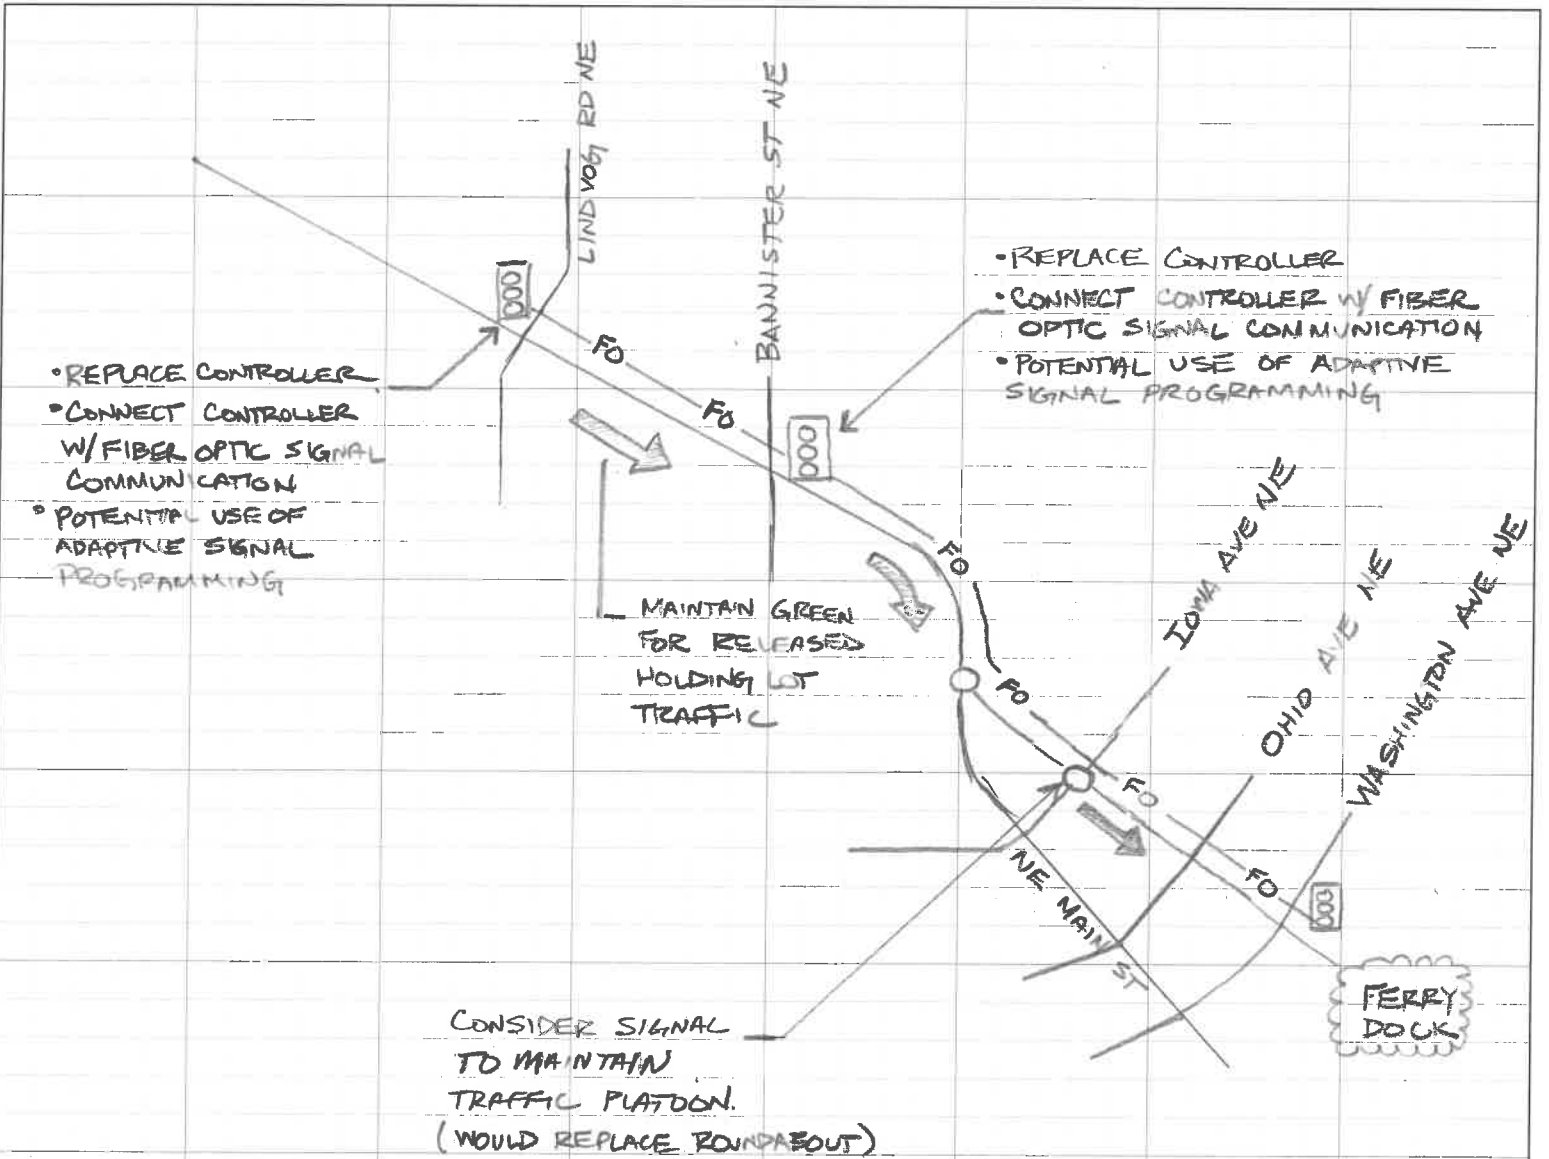 LINDVOG RD NE
BANNISTER ST NE
• REPLACE CONTROLLER
• CONNECT CONTROLLER W/ FIBER
OPTIC SIGNAL COMMUNICATION
• POTENTIAL USE OF ADAPTIVE
SIGNAL PROGRAMMING
• REPLACE CONTROLLER
• CONNECT CONTROLLER
W/ FIBER OPTIC SIGNAL
COMMUNICATION
• POTENTIAL USE OF
ADAPTIVE SIGNAL
PROGRAMMING
FO
FO
FO
FO
FO
FO
MAINTAIN GREEN
FOR RELEASED
HOLDING LOT
TRAFFIC
IOWA AVE NE
OHIO AVE NE
WASHINGTON AVE NE
NE MAIN ST
FERRY
DOCK
CONSIDER SIGNAL
TO MAINTAIN
TRAFFIC PLATOON.
(WOULD REPLACE ROUNDABOUT)